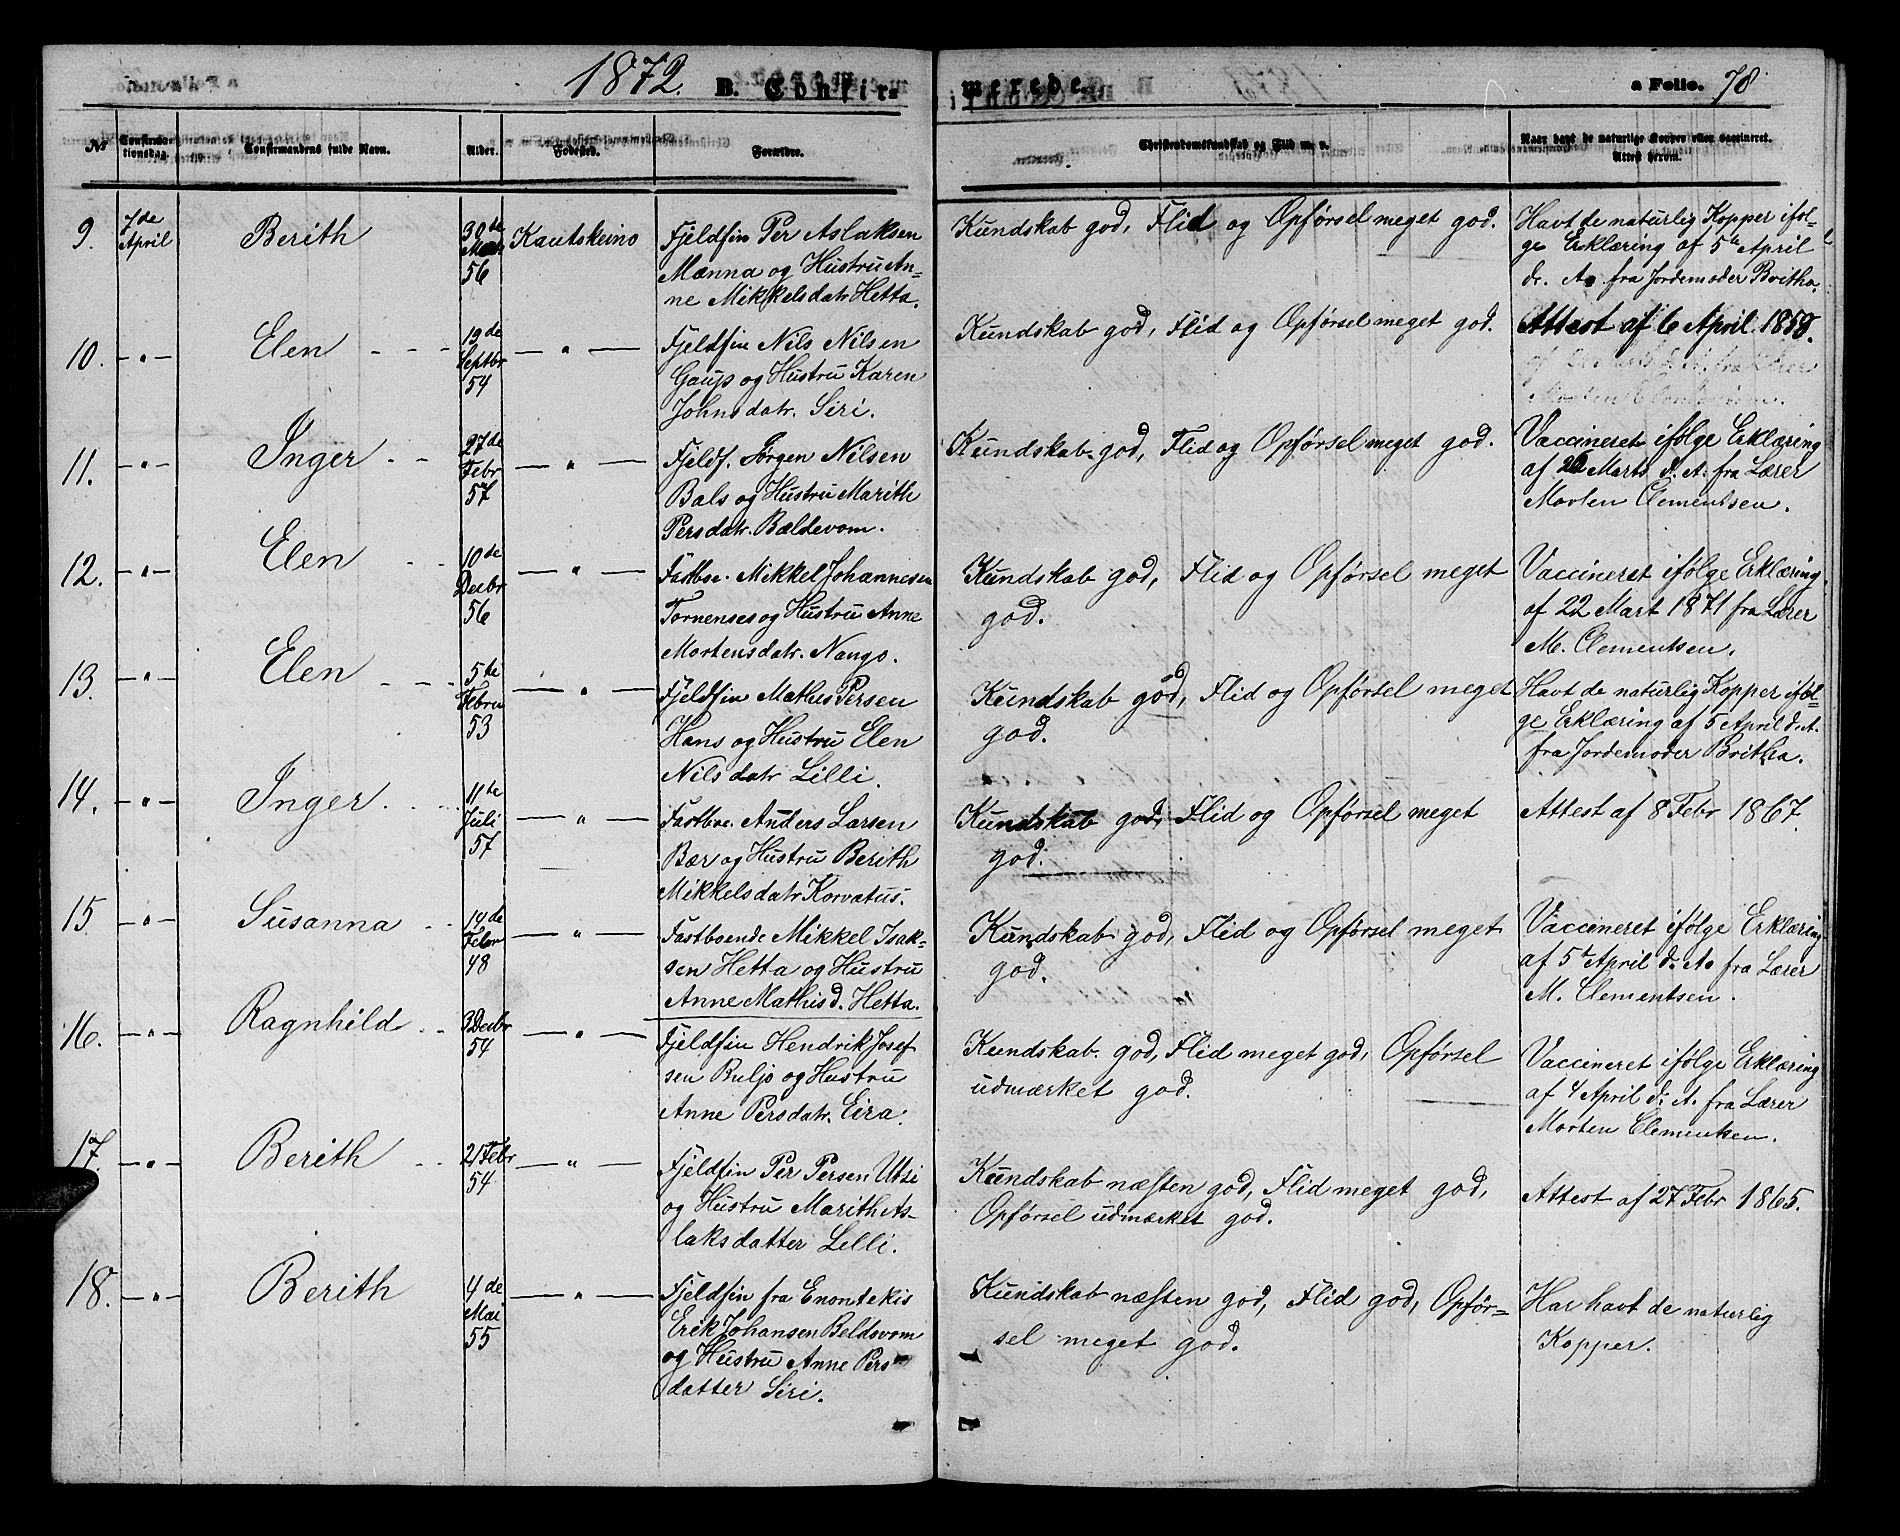 1872. B. Confirmerede. a Folio. 78
No Confirmationsdag. Confirmandens fulde Navn. Alder. Fødested. Forældre. Christendomskundskab og Flid m. v. Naar havt de naturlige Kopper eller vaccineret. Attest herom.
9. 7de April Berith 30te 56 Kautokeino Fjeldfin Per Aslaksen
Mænna og Hustru An-
ne Mikkelsdatr Hetta.
Kundskab god, Flid og Opførsel meget god.
Havt de naturlig Kopper iføl-
ge Erklæring af 5te April
d. A. fra Jordemoder Britha.
10. — " — Elen 19de Septbr 54 — " — Fjeldfin Nils Nilsen
Gaup og Hustru Karen
Johnsdatr. Siri.
Kundskab god, Flid og Opførsel meget god.
Attest af 6 April 1859.
11. — " — Inger 27de Febr 57 — " — Fjeldf. Jørgen Nilsen
Bals og Hustru Marith
Persdatr. Bældevom.
Kundskab god, Flid og Opførsel meget god.
Vaccineret ifølge Erklæring
af 26 Marts d. A. fra Lærer
Morten Clementsen.
12. — " — Elen 10de Decbr 56 — " — Fastboe. Mikkel Johannesen
Tornenses og Hustru Anne
Mortensdatr. Nango.
Kundskab god, Flid og Opførsel meget
god.
Vaccineret ifølge Erklæring
af 22 Mart 1871 fra Lærer
M. Clementsen.
13. — " — Elen 5te Febru 53 — " — Fjeldfin Mathis Persen
Hans og Hustru Elen
Nilsdatr Lilli.
Kundskab god, Flid og Opførsel meget
god.
Havt de naturlig Kopper iføl-
ge Erklæring af 5 April d. A.
fra Jordemoder Britha.
14. — " — Inger 11te Juli 57 — " — Fastboe. Anders Larsen
Bær og Hustru Berith
Mikkelsdatr Korvatus.
Kundskab god, Flid og Opførsel meget
god.
Attest af 8 Febr 1867.
15 — " — Susanna 14de Febr 48 — " — Fastboende Mikkel Isak-
sen Hetta og Hustru
Anne Mathisd. Hetta.
Kundskab god, Flid og Opførsel meget
god.
Vaccineret ifølge Erklæring
af 5te April d. A. fra Lærer
M. Clementsen.
16. — " — Ragnhild 3 Decbr 54 — " — Fjeldfin Hendrik Josef
sen Buljo og Hustru
Anne Persdatr. Eira.
Kundskab god, Flid meget god, Opførsel
udmærket god.
Vaccineret ifølge Erklæring
af 4 April d. A. fra Lærer
Morten Clementsen.
17. — " — Berith 21 Febr 54 — " — Fjeldfin Per Persen Utsi
og Hustru Marith As-
laksdatter Lilli.
Kundskab næsten god, Flid meget god,
Opførsel udmærket god.
Attest af 27 Febr 1865.
18. — " — Berith 4de Mai 55 — " — Fjeldfin fra Enontekis
Erik Johansen Beldsvom
og Hustru Anne Pers
datter Siri.
Kundskab næsten god, Flid god, Opfør-
sel meget god.
Har havt de naturlig
Kopper.